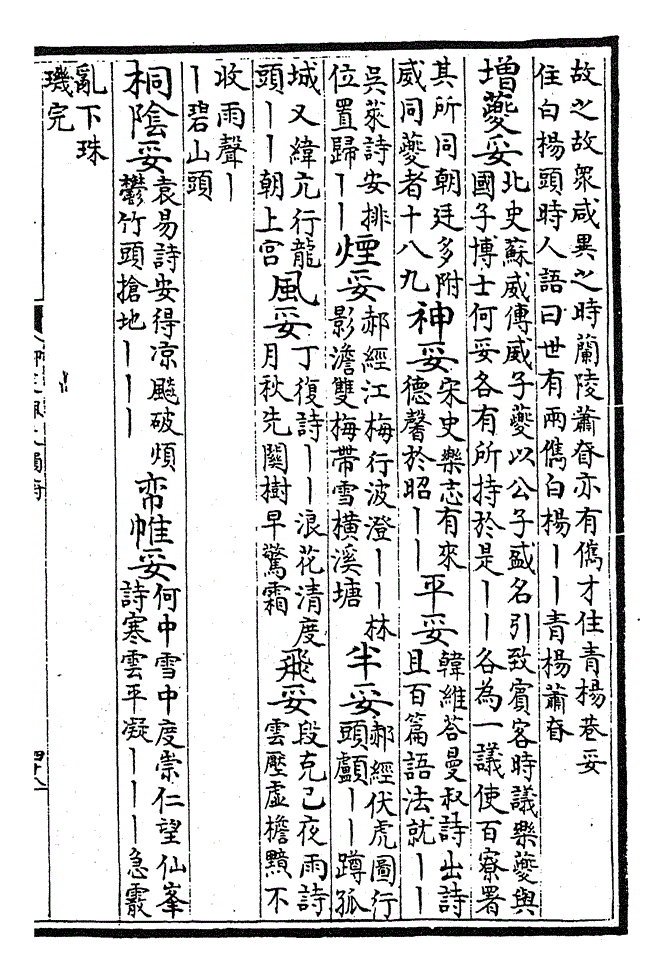 故之故衆咸異之時蘭陵蕭眘亦有儁才住青楊巷妥
住白楊頭時人語曰世有兩儁白楊｜｜青楊蕭眘
增夔妥
北史蘇威傳威子夔以公子盛名引致賓客時議樂夔與
國子博士何妥各有所持於是｜｜各為一議使百寮署
其所同朝廷多附
威同夔者十八九
神妥
宋史樂志有來
德馨於昭｜｜
平妥
韓維荅曼叔詩出詩
且百篇語法就｜｜
吳萊詩安排
位置歸｜｜
煙妥
郝經江梅行波澄｜｜林
影澹雙梅帶雪橫溪塘
半妥
郝經伏虎圖行
頭顱｜｜蹲孤
城又緯亢行龍
頭｜｜朝上宮
風妥
丁復詩｜｜浪花清度
月秋先關樹早驚霜
飛妥
段克己夜雨詩
雲壓虛檐黯不
收雨聲｜
｜碧山頭
桐陰妥
袁易詩安得凉飈破煩
鬱竹頭搶地｜｜｜
帘帷妥
何中雪中度崇仁望仙峯
詩寒雲平凝｜｜｜急霰
亂下珠
璣完